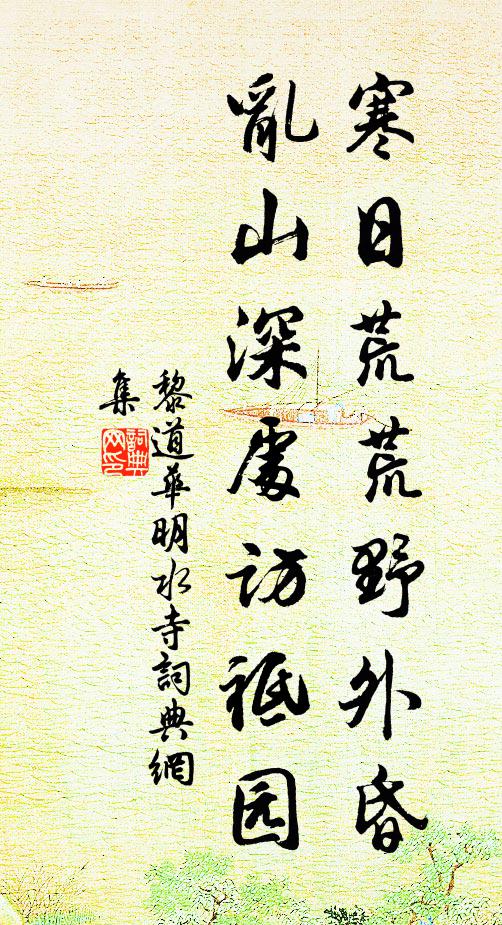 寒日荒荒野外昏
亂山深處訪祗园
黎道華明水寺詞典網
集
詞典
网印